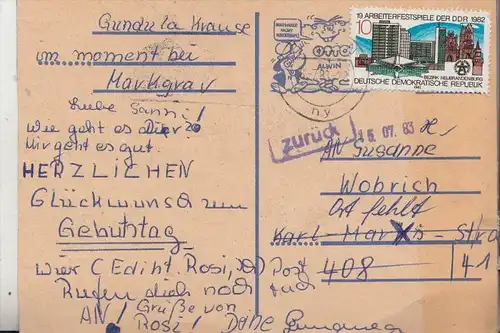 Gundula Krause
im moment bei
Markgrav
Liebe Sanni!
Wie geht es Dir?
Mir geht es gut.
HERZLICHEN
Glückwunsch zum
Gebuhtag
Wier (Ediht. Rosi,
Rufen dich noch
AN! Grüße von
Rosi! Deine
OTTO
ALWIN
19. ARBEITERFESTSPIELE DER DDR 1982
10
BEZIRK NEUBRANDENBURG
DEUTSCHE DEMOKRATISCHE REPUBLIK
zurück
16. 07. 83
AN Susanne
Wobrich
Ort fehlt
Karl-Marx-Stra
Post 408 41